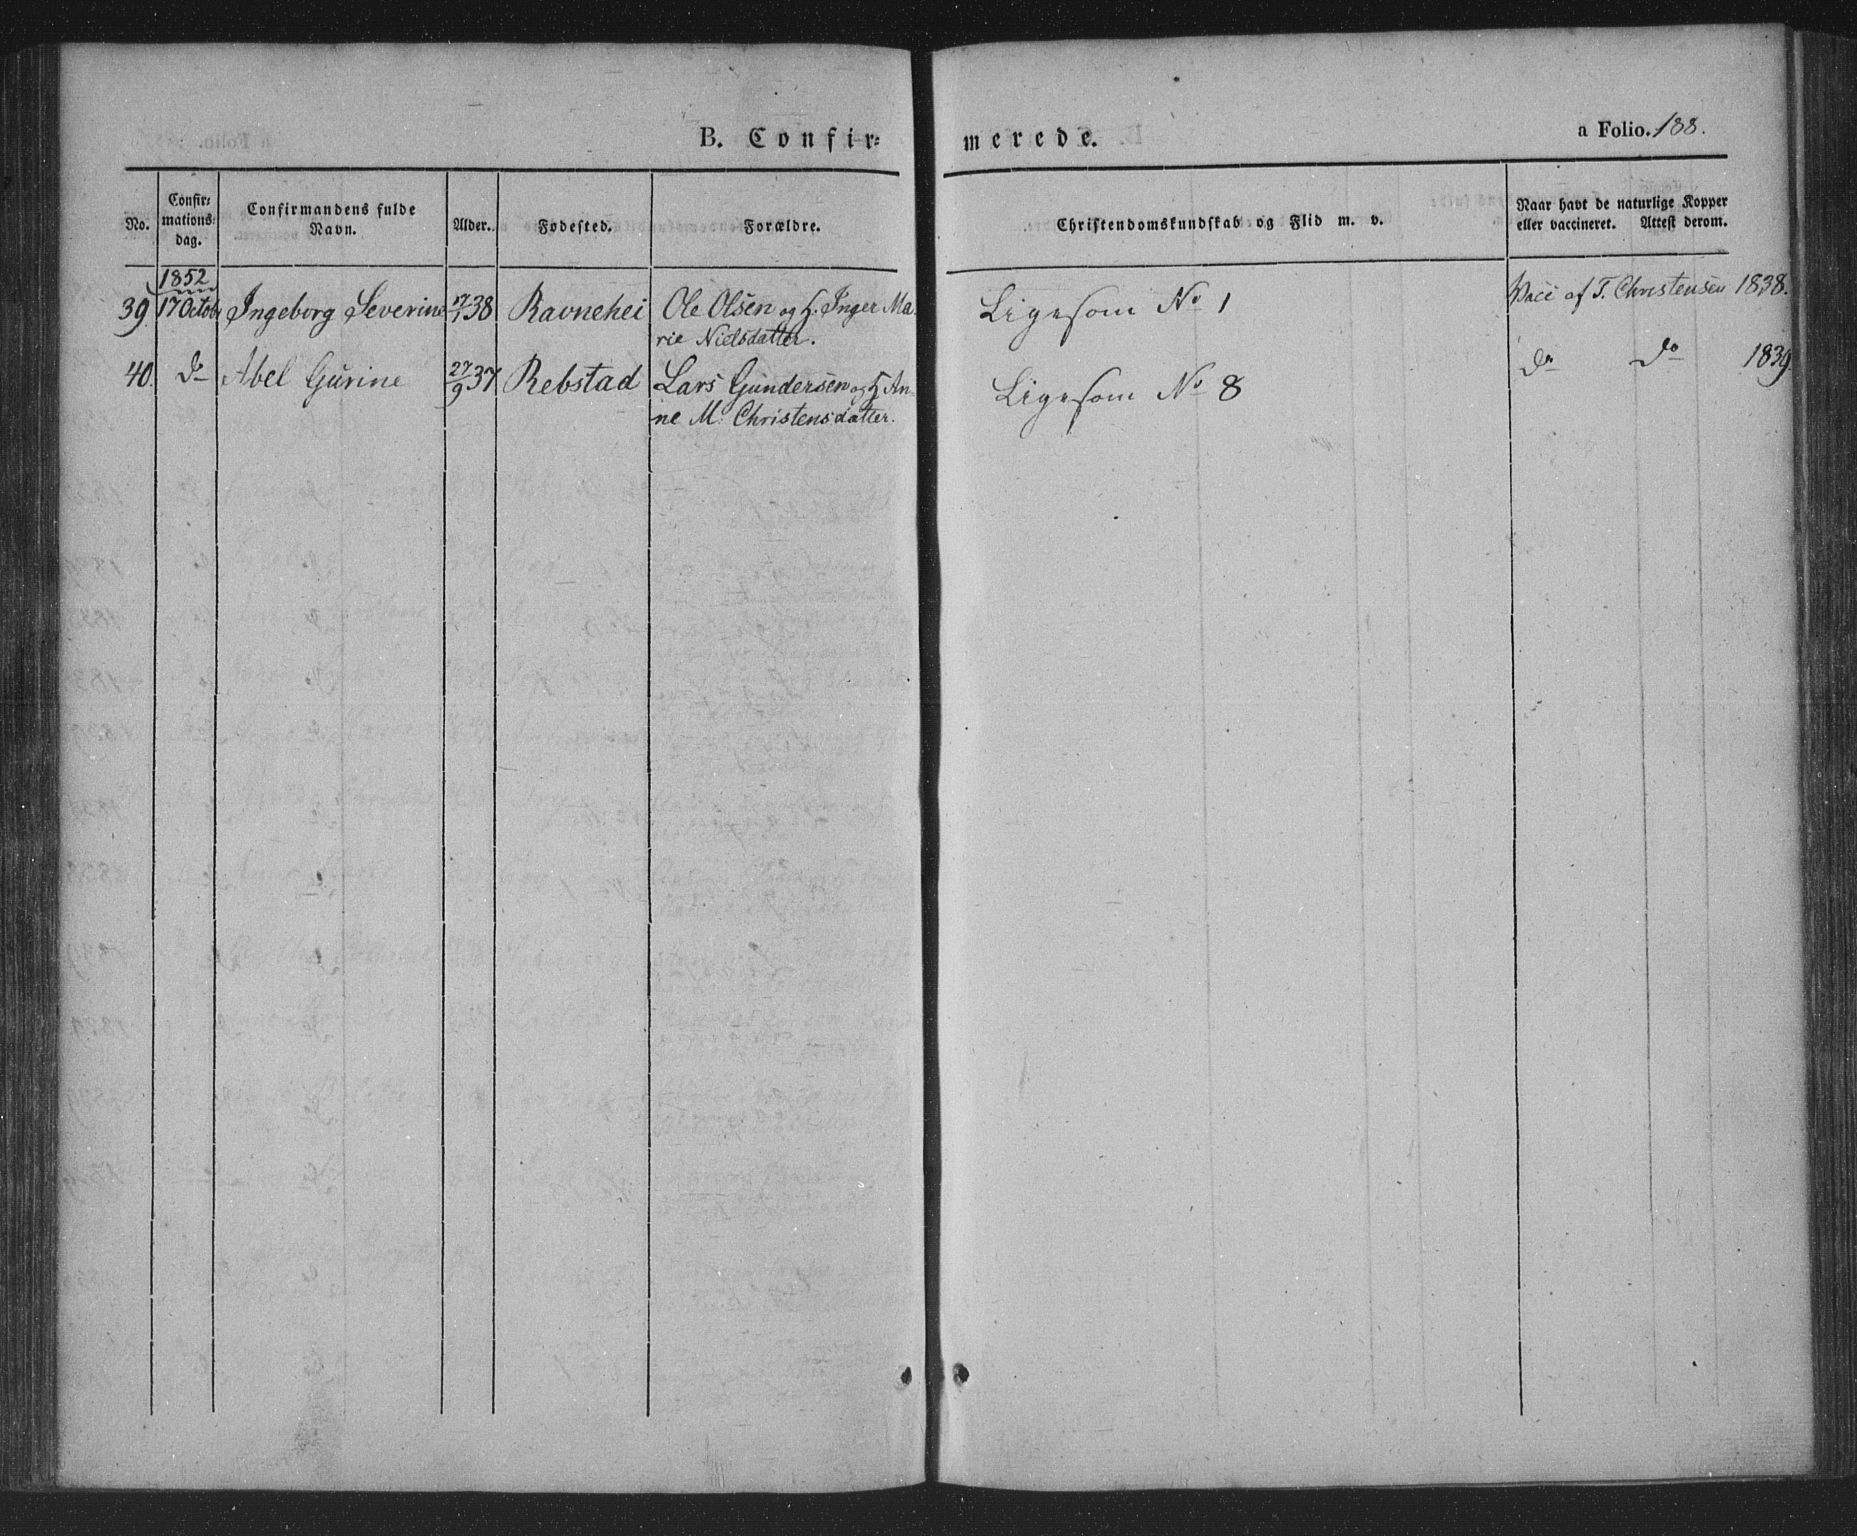 B. Confir= merede.
a Folio. 188.
No.
Confir=
mations=
dag.
Confirmandens fulde
Navn.
Alder.
Fødested.
Forældre.
Christendomskundskab og Flid m. v.
Naar havt de naturlige Kopper
eller vaccineret. Attest derom.
1852
39. 17 Octob Ingeborg Severine 17/1 38 Ravnehei Ole Olsen og H. Inger Ma= Ligesom No 1 Vacc af T. Christensen 1838.
rie Nielsdatter.
40. do Abel Gurine 27/9 37 Rebstad Lars Gundersen og H An= Ligesom No 8 do do 1839.
ne M. Christensdatter.